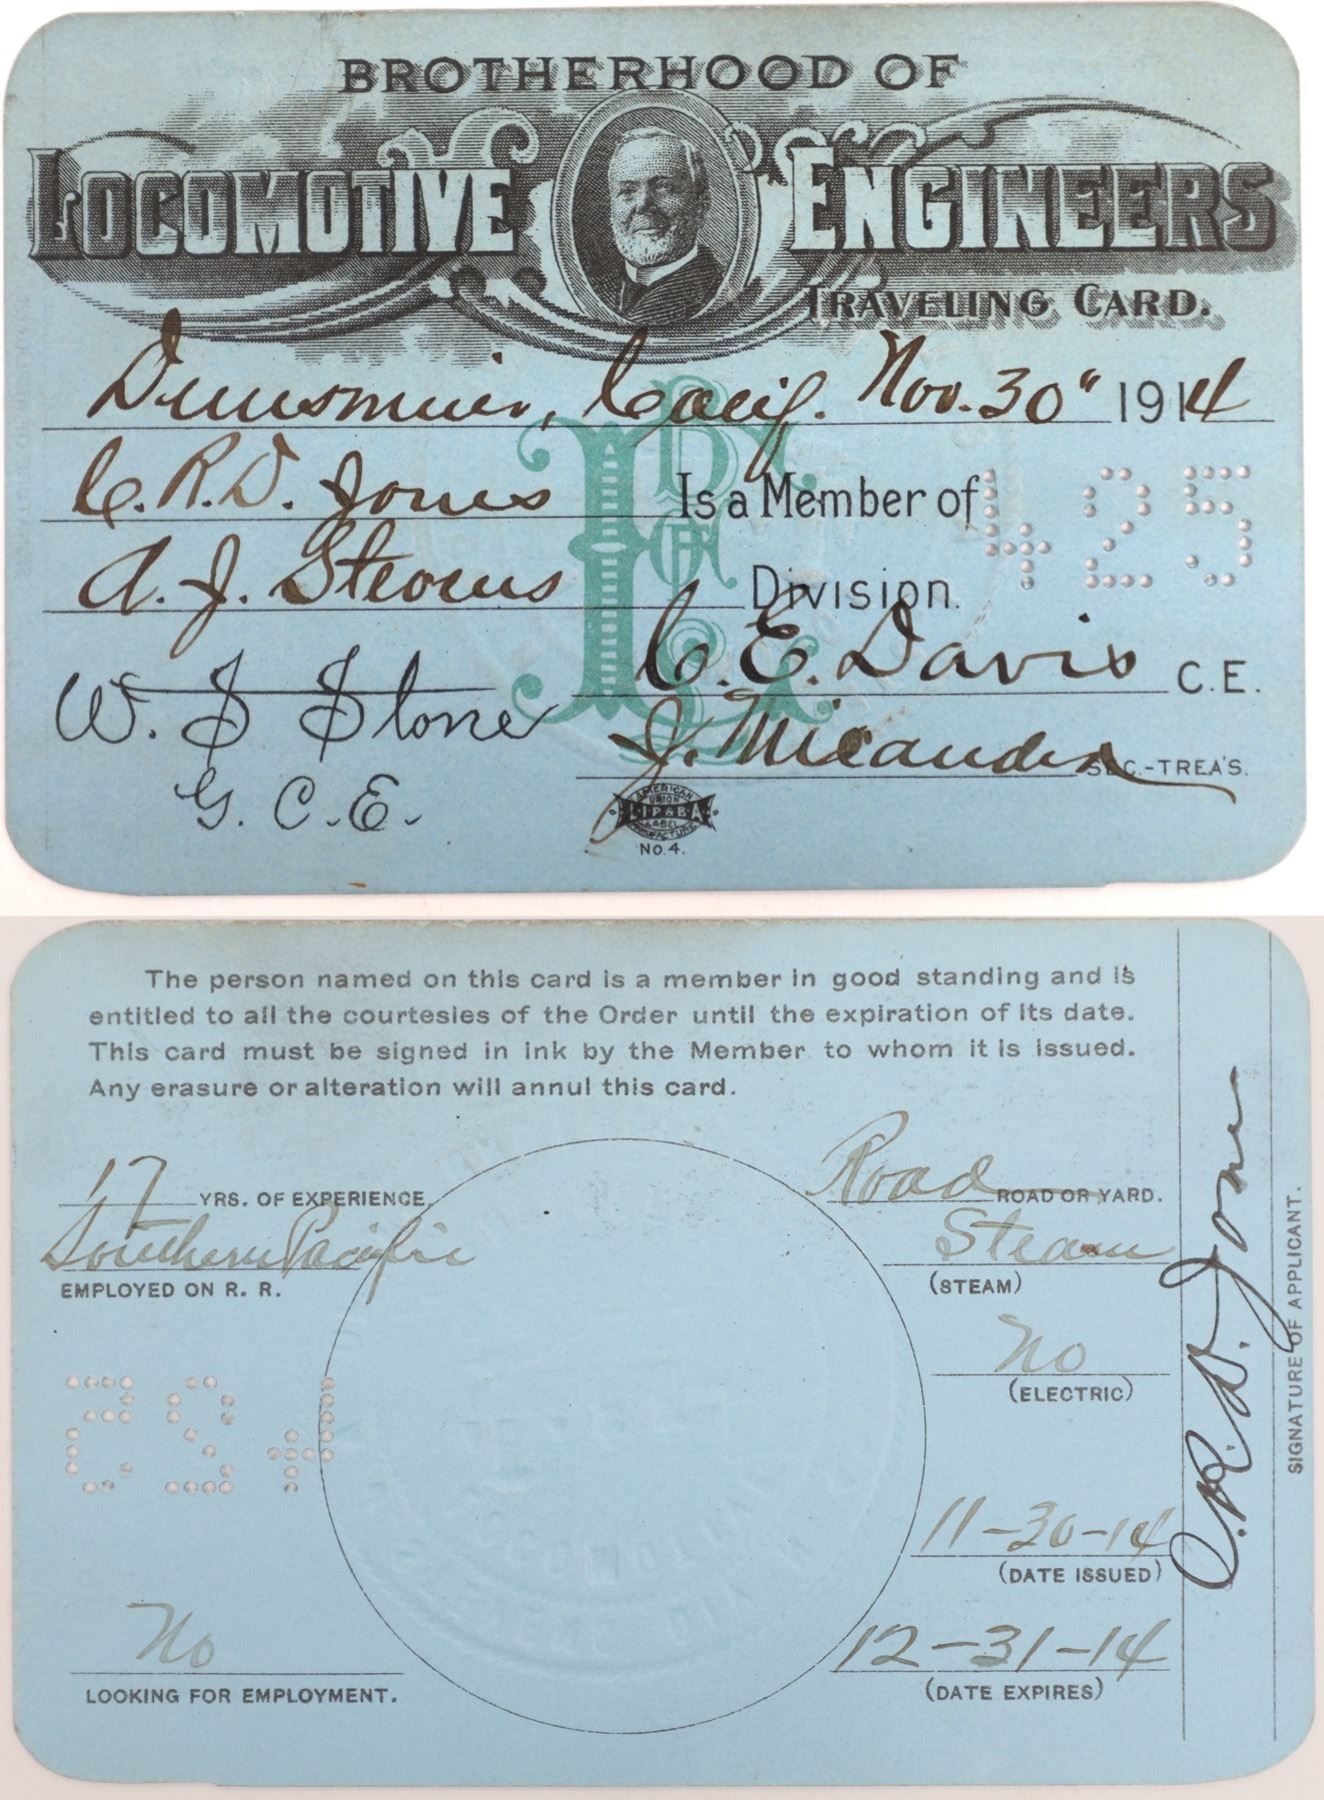 BROTHERHOOD OF
LOCOMOTIVE ENGINEERS
TRAVELING CARD.
Dunsmuir, Calif. Nov. 30" 1914
C. R. D. Jones Is a Member of
A. J. Stevens Division. 425
C. E. Davis C.E.
W. S Stone
G. C. E.
J. SEC.-TREA'S.
AMERICAN
UNION
L.I.P.& B.A.
LABEL
MANUFACTURE
No. 4.
The person named on this card is a member in good standing and is
entitled to all the courtesies of the Order until the expiration of its date.
This card must be signed in ink by the Member to whom it is issued.
Any erasure or alteration will annul this card.
17 YRS. OF EXPERIENCE.
Road ROAD OR YARD.
Southern Pacific
EMPLOYED ON R. R.
Steam
(STEAM)
No
(ELECTRIC)
425
11-30-14
(DATE ISSUED)
No
LOOKING FOR EMPLOYMENT.
12-31-14
(DATE EXPIRES)
C. R. D. Jones
SIGNATURE OF APPLICANT.